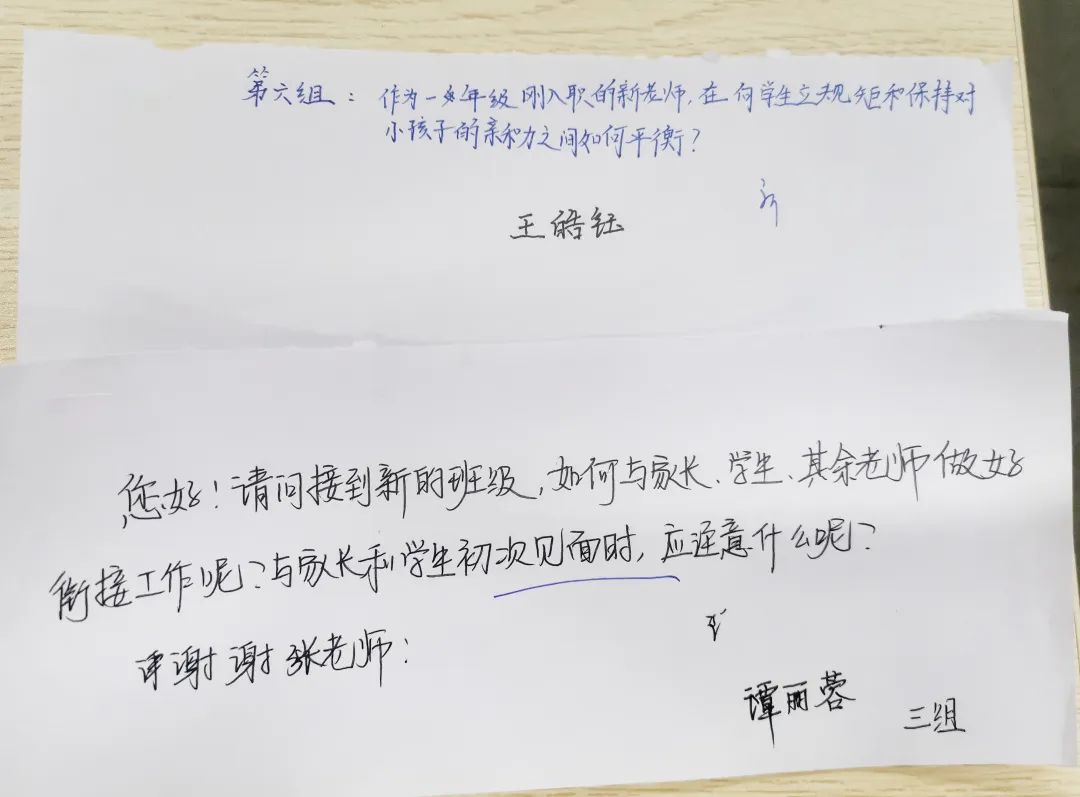 第六组：作为一年级刚入职的新老师，在向学生立规矩和保持对
小孩子的亲和力之间如何平衡？
王皓钰
您好！请问接到新的班级，如何与家长、学生、其余老师做好
衔接工作呢？与家长和学生初次见面时，应注意什么呢？
谢谢张老师！
谭丽蓉
三组